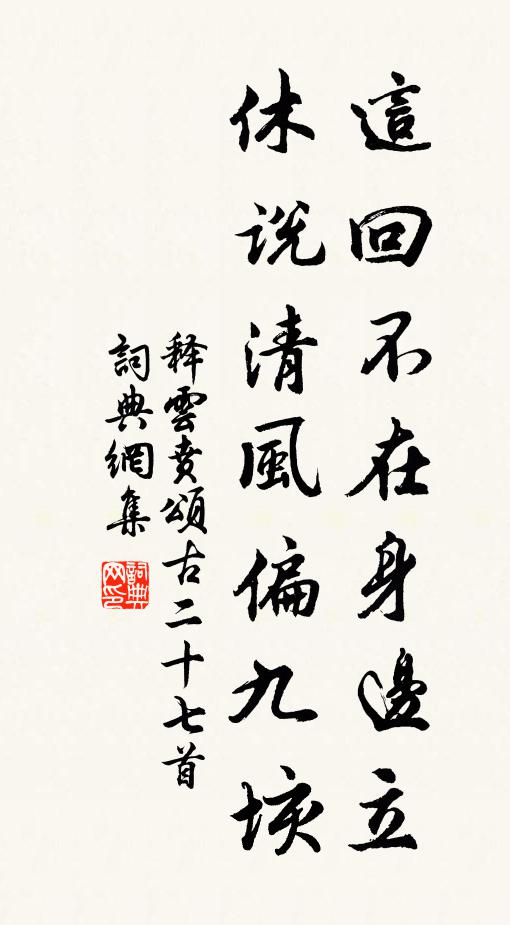 這回不在身邊立
休説清風偏九垓
释雲賁頌古二十七首
詞典網集
詞典网印